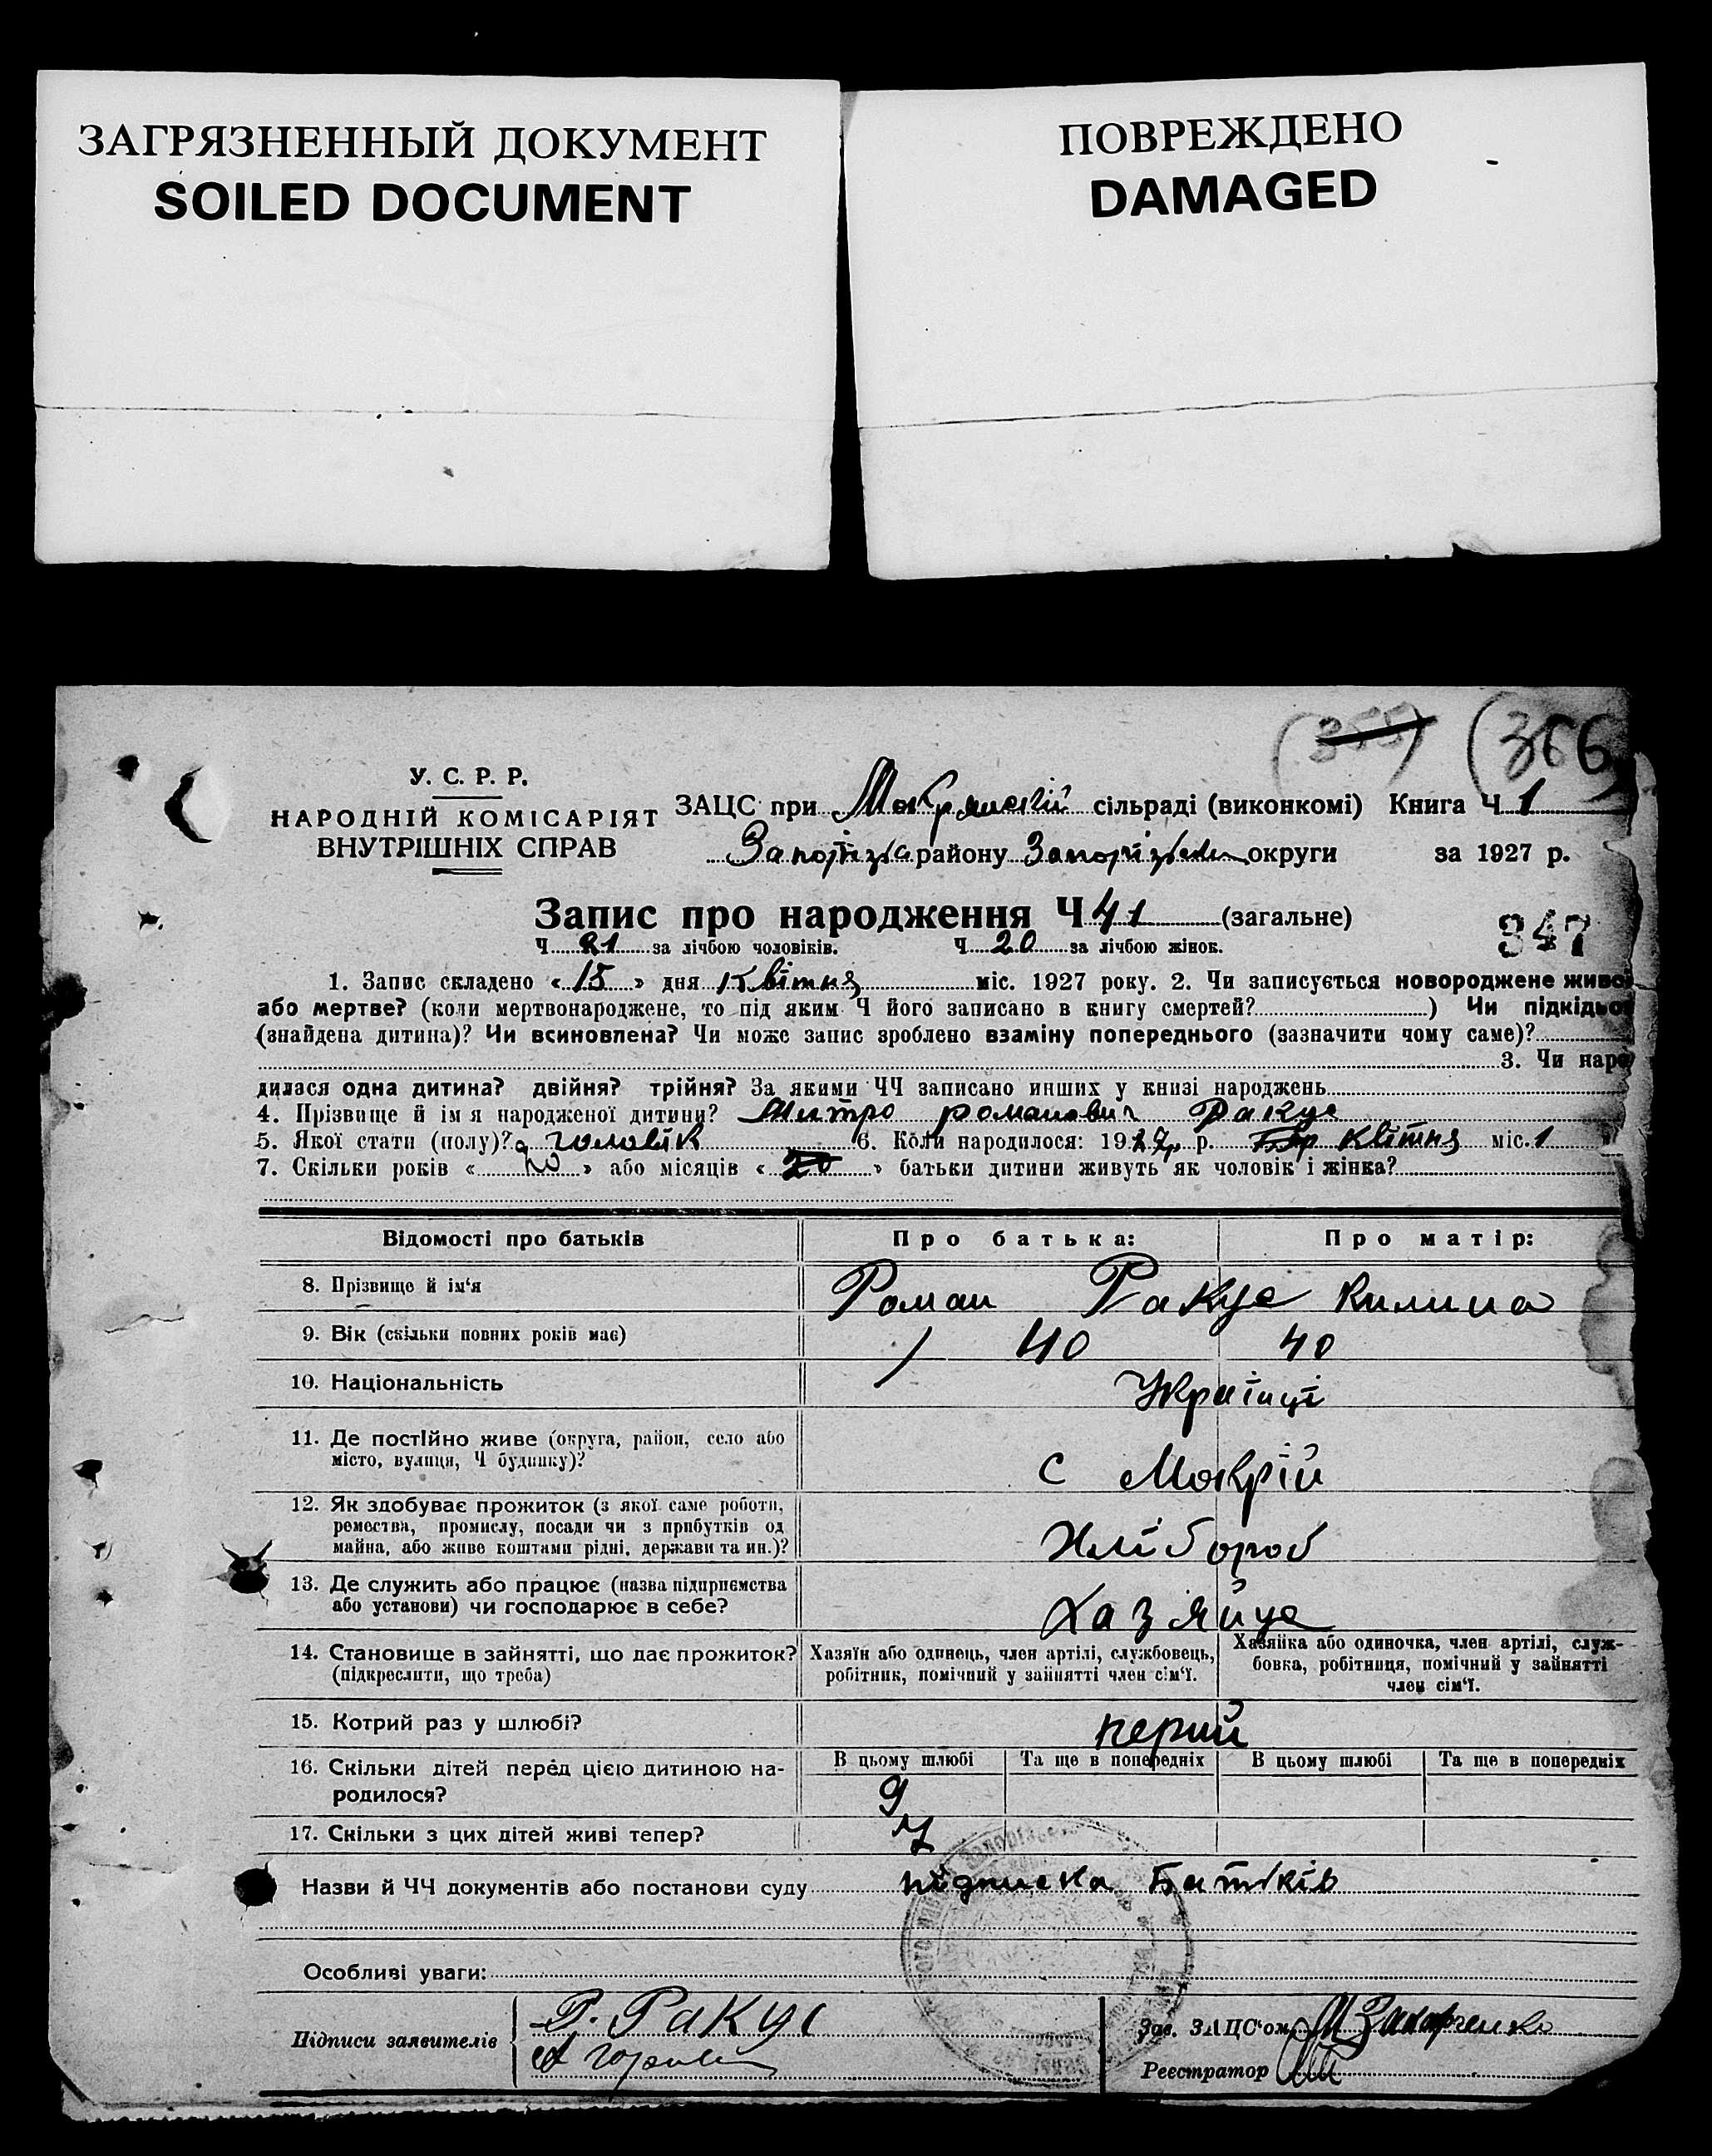 ЗАГРЯЗНЕННЫЙ ДОКУМЕНТ
SOILED DOCUMENT
ПОВРЕЖДЕНО
DAMAGED
(355) (366
У. С. Р. Р.
НАРОДНІЙ КОМІСАРІЯТ
ВНУТРІШНІХ СПРАВ
ЗАЦС при Мокрянскій сільраді (виконкомі) Книга Ч 1
Запоріз району Запорізьк округи за 1927 р.
Запис про народження Ч 41 (загальне)
347
Ч 21 за лічбою чоловіків. Ч 20 за лічбою жінок.
1. Запис складено « 15 » дня Квітня міс. 1927 року. 2. Чи записується новороджене живо
або мертве? (коли мертвонароджене, то під яким Ч його записано в книгу смертей? ) Чи підкідьо
(знайдена дитина)? Чи всиновлена? Чи може запис зроблено взаміну попереднього (зазначити чому саме)?
3. Чи наро
дилася одна дитина? двійня? трійня? За якими ЧЧ записано инших у книзі народжень
4. Прізвище й ім я народженої дитини? Митро романович Ракус
5. Якої стати (полу)? чоловік 6. Коли народилося: 1927 р. Квітня міс. 1
7. Скільки років « 20 » або місяців « 20 » батьки дитини живуть як чоловік і жінка?
Відомості про батьків Про батька: Про матір:
8. Прізвище й ім‘я Роман Ракус Килина
9. Вік (скільки повних років має) 40 40
10. Національність Українці
11. Де постійно живе (округа, район, село або
місто, вулиця, Ч будинку)? с Мокрій
12. Як здобуває прожиток (з якої саме роботи,
ремества, промислу, посади чи з прибутків од
майна, або живе коштами рідні, держави та ин.)? Хлібороб
13. Де служить або працює (назва підприємства
або установи) чи господарює в себе? Хазяйнує
14. Становище в зайнятті, що дає прожиток?
(підкреслити, що треба)
Хазяїн або одинець, член артілі, службовець,
робітник, помічний у зайнятті член сім‘ї.
Хазяйка або одиночка, член артілі, служ-
бовка, робітниця, помічний у зайнятті
член сім‘ї.
15. Котрий раз у шлюбі? перий
16. Скільки дітей перед цією дитиною на-
родилося?
В цьому шлюбі Та ще в попередніх В цьому шлюбі Та ще в попередніх
9
17. Скільки з цих дітей живі тепер? 7
Назви й ЧЧ документів або постанови суду підписка Батьків
Особливі уваги:
Підписи заявителів Р. Ракус
Зав. ЗАЦС‘ом Захарченко
Реєстратор